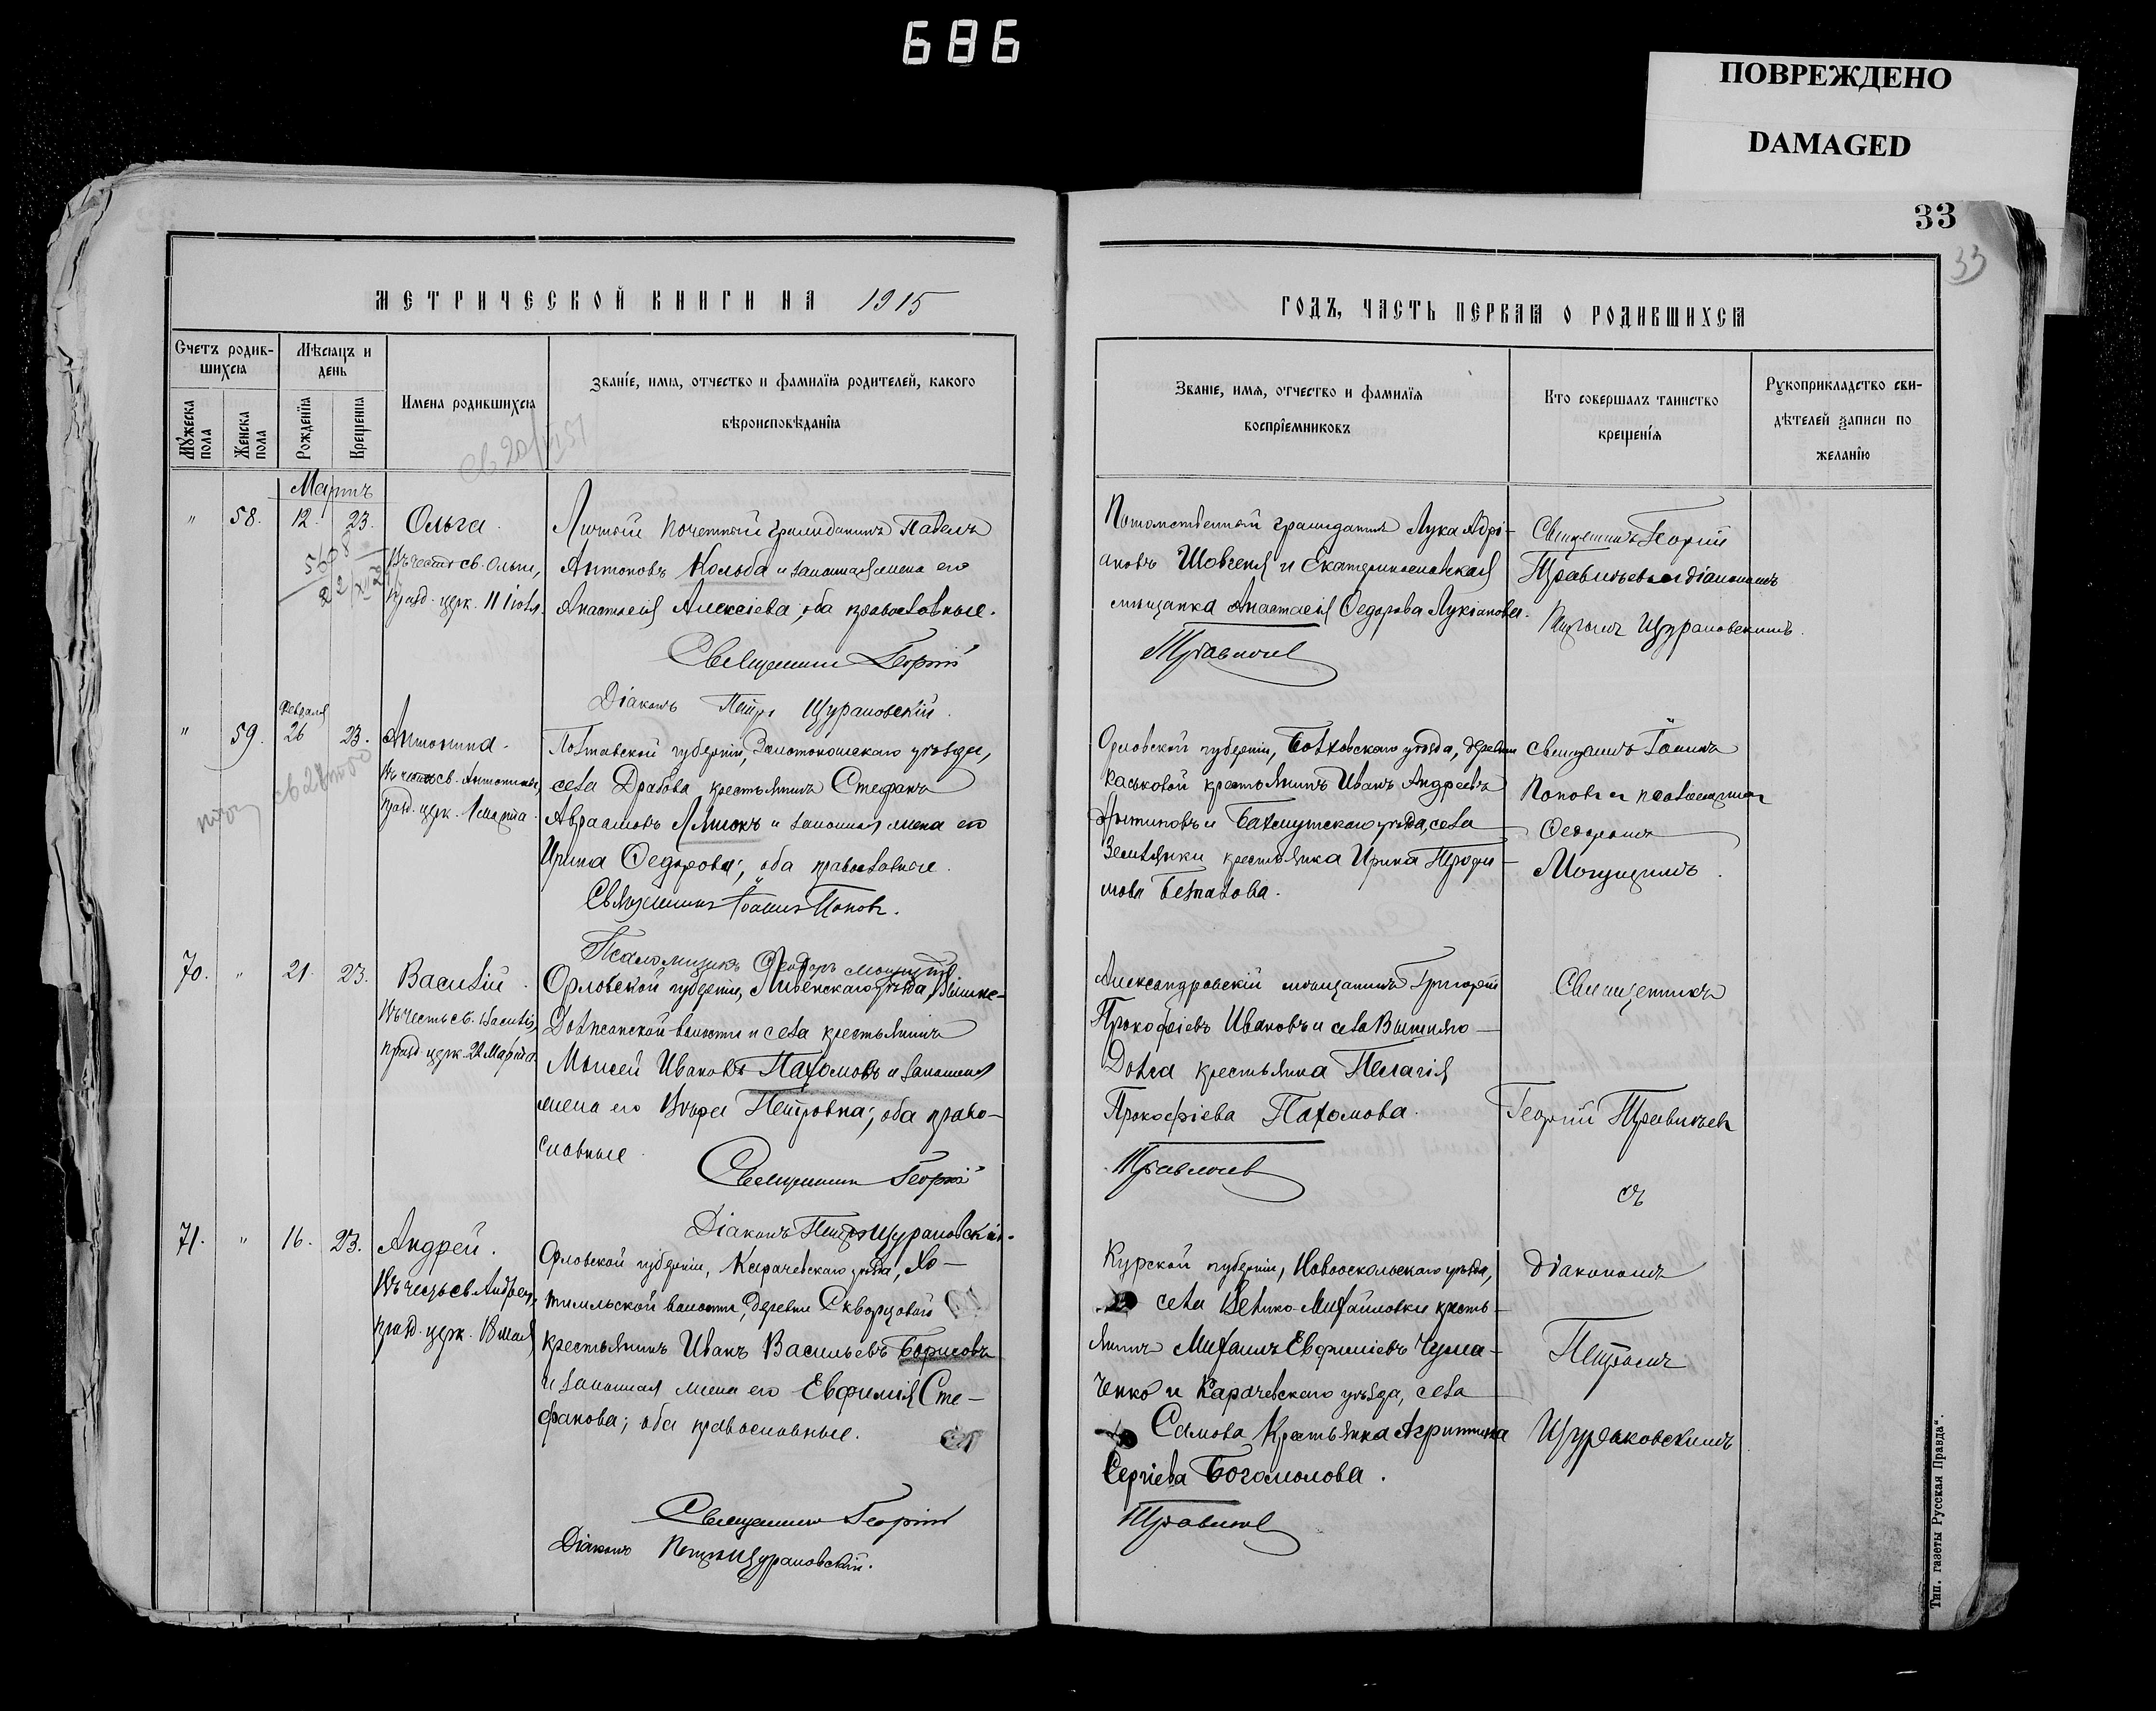 686
ПОВРЕЖДЕНО
DAMAGED
33
33
МЕТРИЧЕСКОЙ КНИГИ НА 1915
Счетъ родив-
шихся
Мѣсяцъ и
день
Мужеска пола
Женска пола
Рожденія
Крещенія
Имена родившихся
Званіе, имя, отчество и фамилія родителей, какого
вѣроисповѣданія
Мартъ
" 58. 12. 23. Ольга.
Въ честь св. Ольги,
празд. церк. 11 іюля.
Личный почетный гражданинъ Павелъ
Антоновъ Кольба и законная жена его
Анастасія Алексѣева; оба православные.
Священникъ Георгій
Діаконъ Петръ Щурановскій.
" 59. Февраля 26 23. Антонина.
Въ честь св. Антонины,
празд. церк. 1 марта.
Полтавской губерніи, Золотоношскаго уѣзда,
села Драбова крестьянинъ Стефанъ
Авраамовъ и законная жена его
Ирина Федорова; оба православные.
Священникъ Іоаннъ Поповъ.
Псаломщикъ Феодоръ
70. " 21. 23. Василій.
Въ честь св. Василія,
празд. церк. 22 Марта.
Орловской губерніи, Ливенскаго уѣзда, Вышне-
Должанской волости и села крестьянинъ
Моисей Ивановъ Пахомовъ и законная
жена его Вѣра Петровна; оба право-
славные.
Священникъ Георгій
Діаконъ Петръ Щурановскій.
71. " 16. 23. Андрей.
Въ честь св. Андрея,
празд. церк. 18 мая
Орловской губерніи, Карачевскаго уѣзда, Хо-
тимльской волости, деревни Скворцовой
крестьянинъ Иванъ Васильевъ Борисовъ
и законная жена его Евфимія Сте-
фанова; оба православные.
Священникъ Георгій
Діаконъ Петръ Щурановскій.
ГОДЪ, ЧАСТЬ ПЕРВАЯ О РОДИВШИХСЯ
Званіе, имя, отчество и фамилія
воспріемниковъ
Кто совершалъ таинство
крещенія
Рукоприкладство сви-
дѣтелей записи по
желанію
Потомственный гражданинъ Лука Адрі-
ановъ Шовгеня и Екатеринославская
мѣщанка Анастасія Федорова Лукіанова.
Травлевъ
Священникъ Георгій
съ діакономъ
Петромъ Щурановскимъ.
Орловской губерніи, Болховскаго уѣзда, деревни
Каськовой крестьянинъ Иванъ Андреевъ
и Бахмутскаго уѣзда, села
Землянки крестьянка Ирина Трофи-
мова Безталова.
Священникъ Іоаннъ
Поповъ и псаломщикъ
Федоромъ
Александровскій мѣщанинъ Григорій
Прокофіевъ Ивановъ и села Вышняго-
Должа крестьянка Пелагія
Прокофіева Пахомова.
Священникъ
Георгій
съ
Курской губерніи, Новооскольскаго уѣзда,
села Велико-Михайловки кресть-
янинъ Михаилъ Евфиміевъ Чума-
ченко и Карачевскаго уѣзда, села
Самова Крестьянка Агриппина
Сергіева Богомолова.
діакономъ
Петромъ
Щурановскимъ
Тип. газеты „Русская Правда".